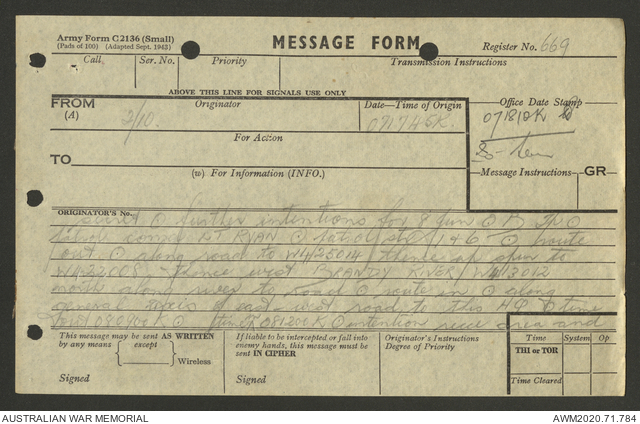 Army Form C2136 (Small)
(Pads of 100) (Adapted Sept. 1943)
MESSAGE FORM
Register No. 669
Call Ser. No. Priority Transmission Instructions
ABOVE THIS LINE FOR SIGNALS USE ONLY
FROM Originator Date—Time of Origin Office Date Stamp
(A) 2/10. 071745K. 071812K
For Action
TO
(W) For Information (INFO.) Message Instructions GR
ORIGINATOR'S No.
secret O further intentions for 8 Jun O B Tp O
LT RYAN O patrol 1+6 O route
out O along road to W4/25014 thence up spur to
thence west BRANDY RIVER W4/13012
north along river to road O route in O along
general of east west road to this HQ O time
out 080900K O time 081200K O intention recce area and
This message may be sent AS WRITTEN
by any means except
Wireless
Signed
If liable to be intercepted or fall into
enemy hands, this message must be
sent IN CIPHER
Signed
Originator's Instructions
Degree of Priority
Time System Op
THI or TOR
Time Cleared
AUSTRALIAN WAR MEMORIAL
AWM2020.71.784